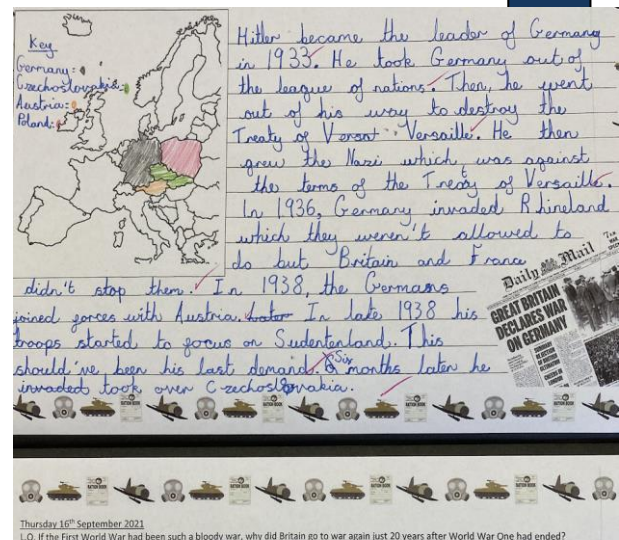 Key
Germany:
Czechoslovakia:
Austria:
Poland:
Hitler became the leader of Germany
in 1933. He took Germany out of
the league of nations. Then, he went
out of his way to destroy the
Treaty of Versat Versaille. He then
grew the Nazi which, was against
the terms of the Treaty of Versaille.
In 1936, Germany invaded Rhineland
which they weren't allowed to
do but Britain and France
didn't stop them. In 1938, the Germans
joined forces with Austria. Later In late 1938 his
troops started to focus on Sudentenland. This
should've been his last demand. Six months later he
invaded took over Czechoslovakia.
Daily Mail
GREAT BRITAIN
DECLARES WAR
ON GERMANY
RATION BOOK
RATION BOOK
RATION BOOK
RATION BOOK
RATION BOOK
Thursday 16th September 2021
L.O. If the First World War had been such a bloody war, why did Britain go to war again just 20 years after World War One had ended?